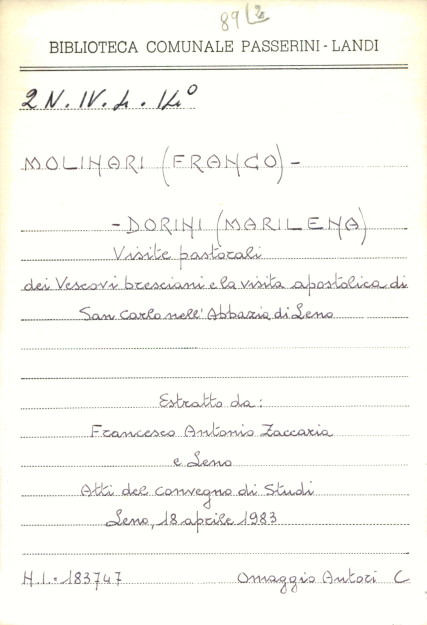 89/2
BIBLIOTECA COMUNALE PASSERINI - LANDI
2 N. IV. 4. 14°
MOLINARI (FRANCO) -
- DORINI (MARILENA)
Visite pastorali
dei Vescovi bresciani e la visita apostolica di
San Carlo nell'Abbazia di Leno
Estratto da:
Francesco Antonio Zaccaria
e Leno
Atti del convegno di Studi
Leno, 18 aprile 1983
H.I.= 183747 Omaggio Autori C